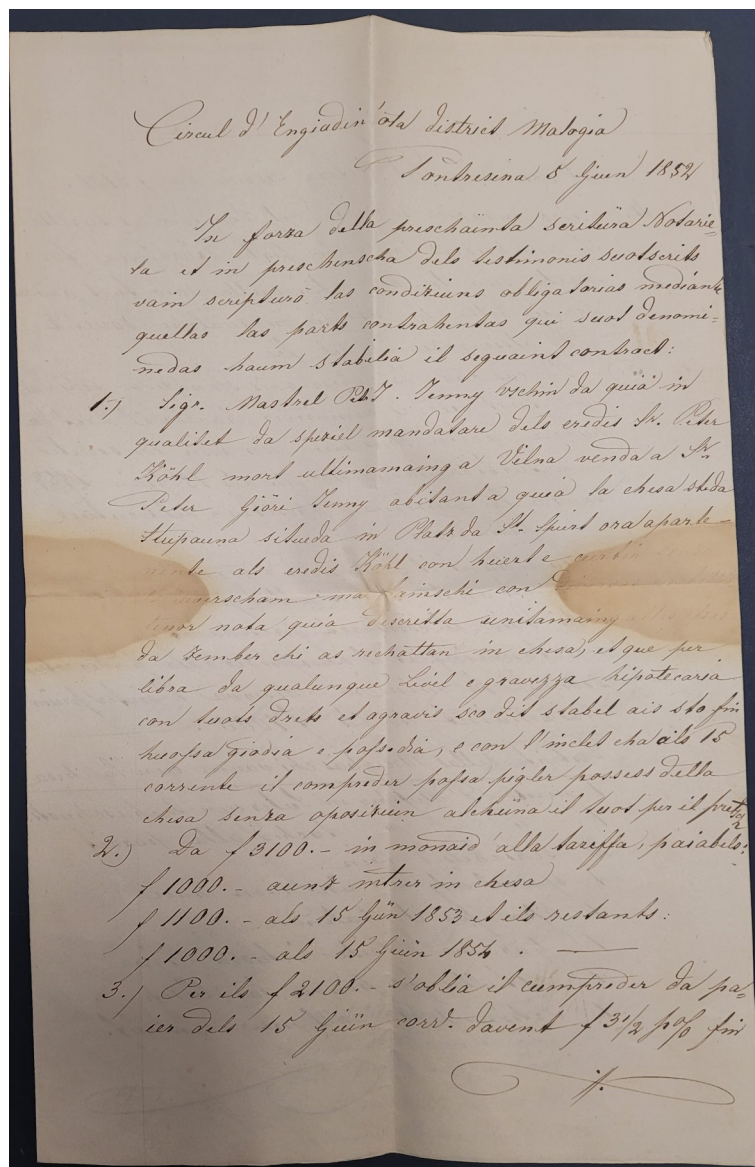 Circul d'Engiadin'ota district Malogia
Pontresina 5 Giün 1852
In forza della preschainta scritüra Notarie=
la et in preschenscha dels testimonis suotscrits
vain scripturò las condiziuns obligatorias mediante
quellas las parts contrahentas qui suot denomi=
nedas haum stabilia il seguaint contract:
1.) Sigr. Mastrel P. J. Jenny vschin da quia in
qualitet da speziel mandatare dels eredis Sr. Peter
Köhl mort ultimamaing a Vilna venda a Sr.
Peter Giöri Jenny abitant a quia la chesa steda
Stupauna situeda in Platz da St. Spiert ora aparte=
nente als eredis Köhl con huert e
con
nota quia descritta unitamaing
da zember chi as rechattan in chesa, et que per
libra da qualunque Livel e gravezza hipotecaria
con tuots drets et agravis sco dit stabel ais sto fin
huossa giodia e possedia, e con l'inclet cha ils 15
corrente il compreder possa pigler possess della
chesa senza oposiziun alchüna il tuot per il pretsch
2.) Da f 3100.- in monaid' alla tariffa, paiabels:
f 1000.- aunz intrer in chesa
f 1100.- als 15 Giün 1853 et ils restants:
f 1000.- als 15 Giün 1854. —
3.) Per ils f 2100.- s'oblia il cumpreder da pa=
ier dels 15 Giün corrt. davent f 3 1/2 p% fin
//.